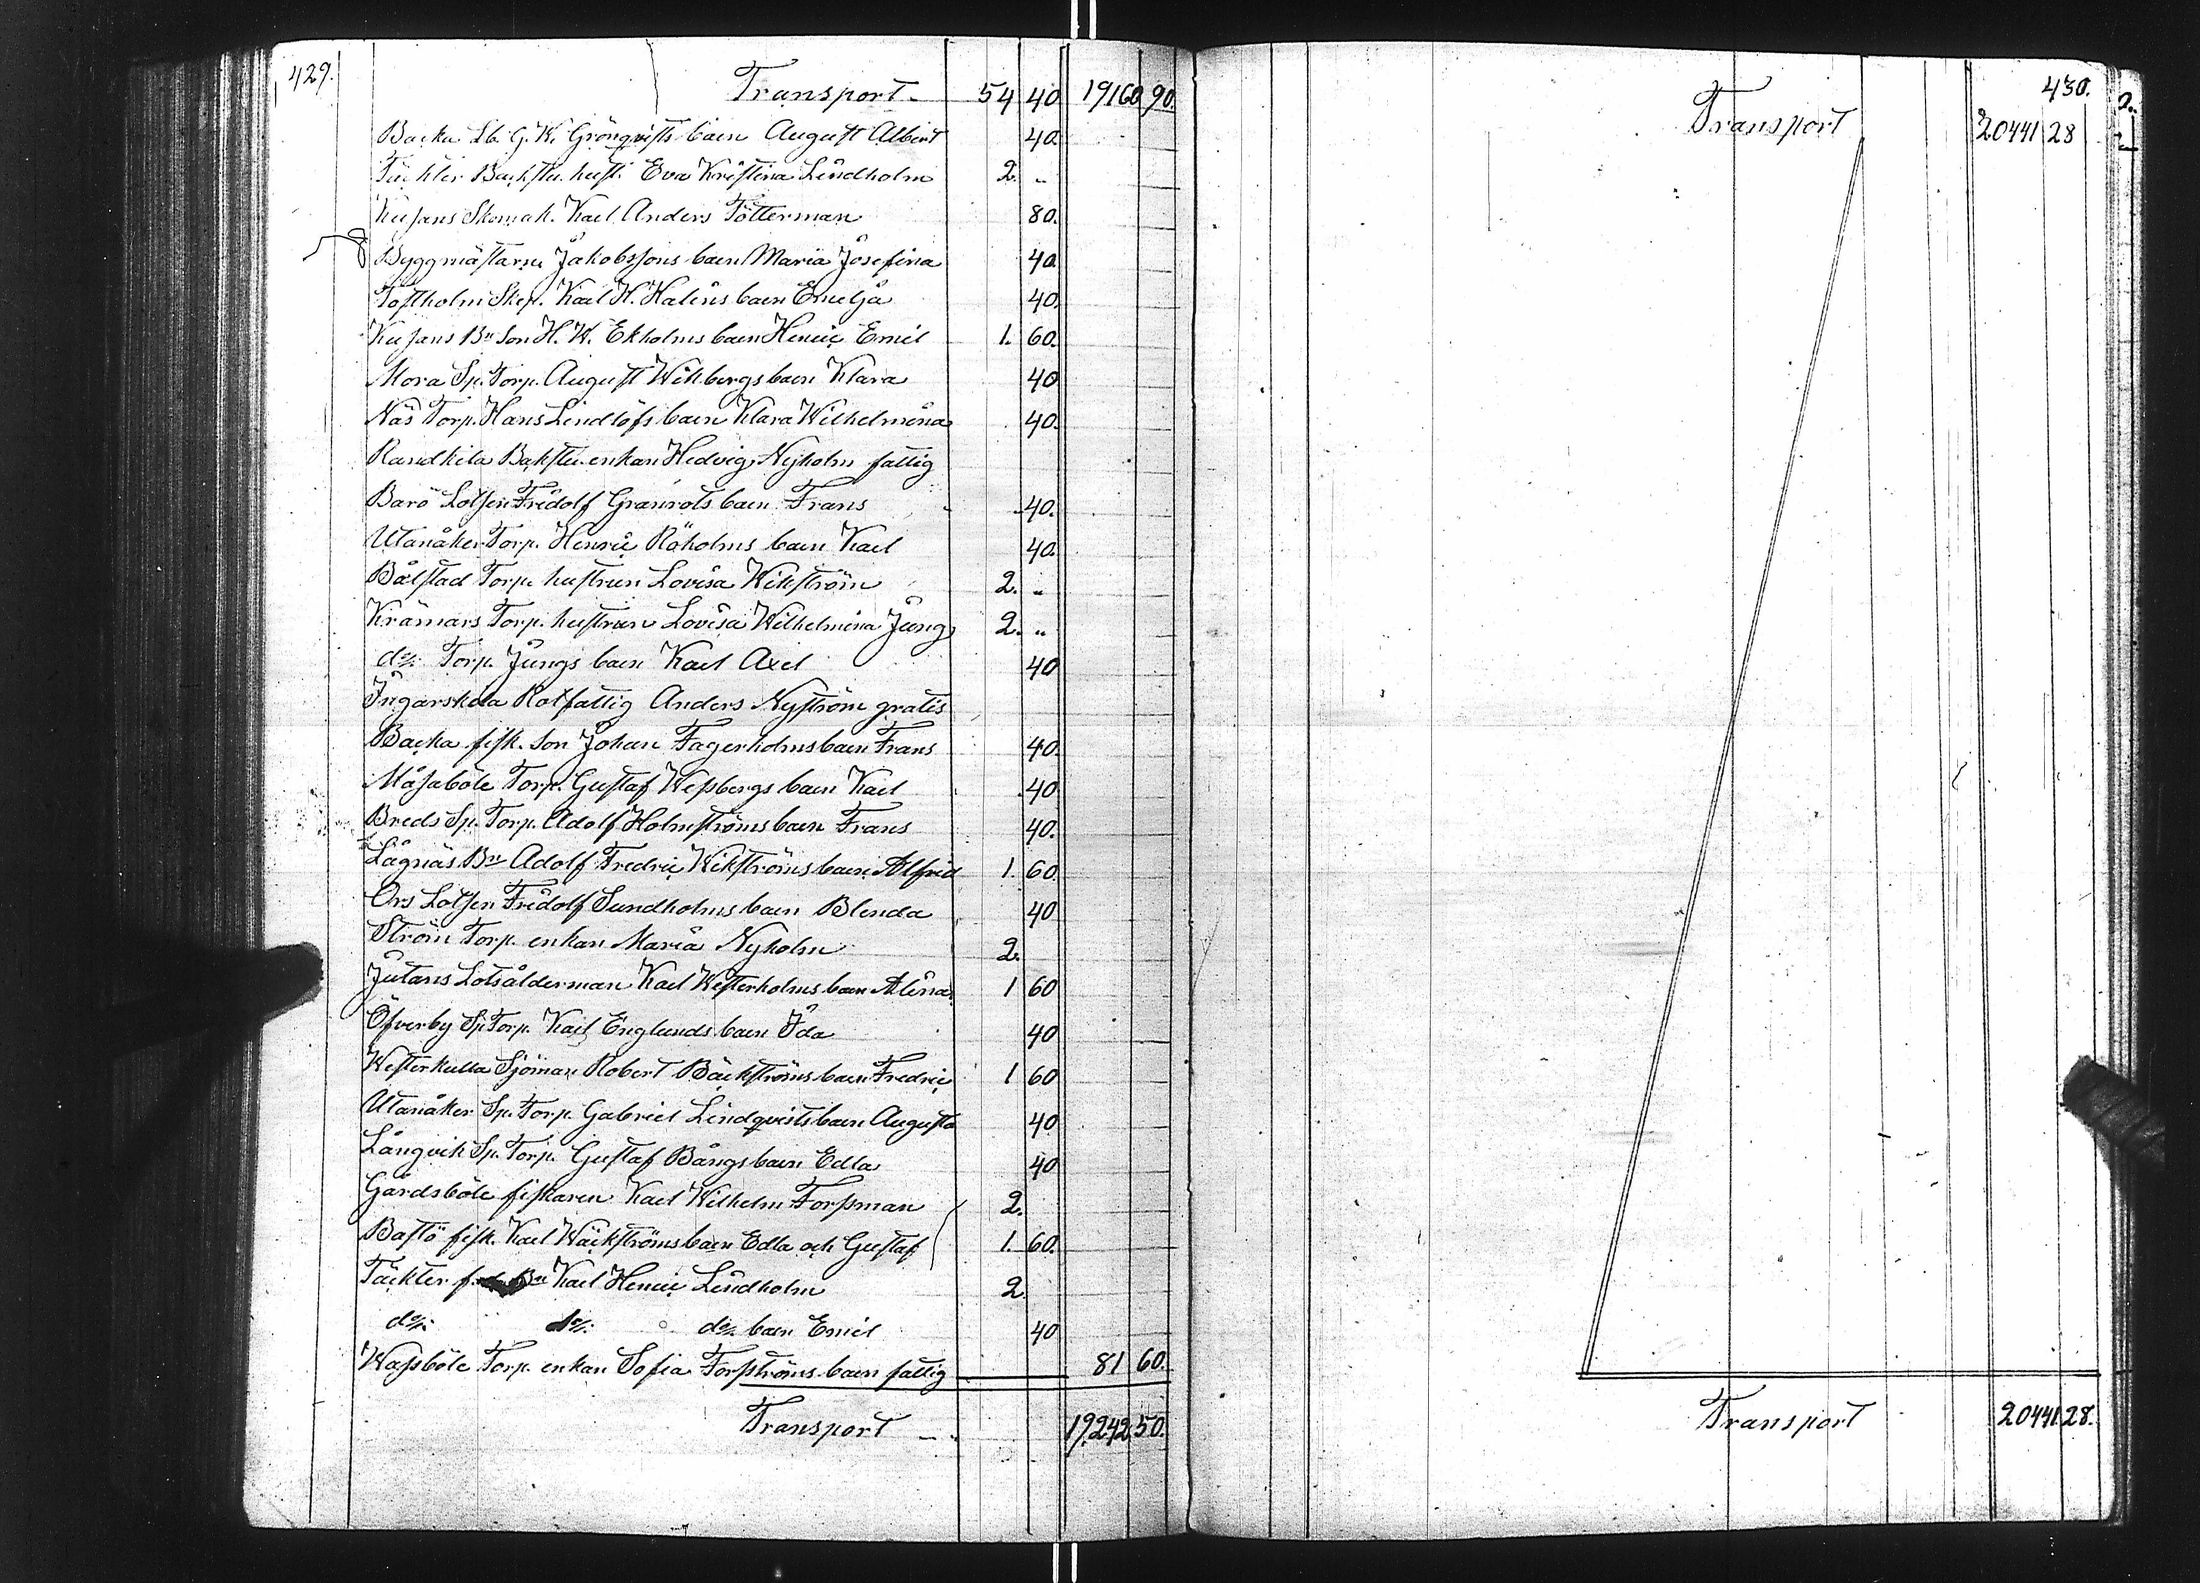 429.
Transport 54 40 19160 90.
Backa Lb. G. W. Grönqvists barn August Albert 40.
Täckter Backstu. hust. Eva Kristina Lindholm 2. "
Kusans Skomak. Karl Anders Tötterman 80.
Byggmästaren Jakobssons barn Maria Josefina 40
Toftholm Skep. Karl H. Haléns barn Emelja 40.
Kusans Bn Son H. W. Ekholms barn Henric Emil 1. 60.
Mora Sp. Torp. August Wikbergs barn Klara 40
Näs Torp. Hans Lindlöfs barn Klara Wilhelmina 40.
Randkila Bakstu. enkan Hedvig Nyholm fattig
Barö Lotsen Fridolf Granrots barn Frans 40.
Utanåker Torp. Henric Röholms barn Karl 40.
Bålstad Torp. hustrun Lovisa Wikström 2. "
Krämars Torp. hustrun Lovisa Wilhelmina Jung 2. "
do. Torp. Jungs barn Karl Axel 40
Ingarskila Rotfattig Anders Nyström gratis
Backa fisk. Son Johan Fagerholms barn Frans 40.
Måsaböle Torp. Gustaf Wessbergs barn Karl 40
Breds Sp. Torp. Adolf Holmströms barn Frans 40.
Lågnäs Bn Adolf Fredric Wikströms barn Alfrid 1. 60
Ors Lotsen Fridolf Sundholms barn Blenda 40
Ström Torp. enkan Maria Nyholm 2.
Jutans Lotsålderman Karl Westerholms barn Alina 1 60
Öfverby Sp. Torp. Karl Englunds barn Ida 40
Westerkulla Sjöman Robert Bäckströms barn Fredric 1 60
Utanåker Sp. Torp. Gabriel Lindqvists barn Augusta 40
Långvik Sp. Torp. Gustaf Bångs barn Edla 40
Gårdsböle fiskaren Karl Wilhelm Forssman 2.
Bastö fisk. Karl Wäckströms barn Edla och Gustaf 1. 60.
Täckter Bn Karl Henric Lindholm 2
do. do. do. barn Emil 40
Wassböle Torp. enkan Sofia Forsströms barn fattig 81 60.
Transport 19242 50.
430.
Transport 20441 28
Transport 20441 28.